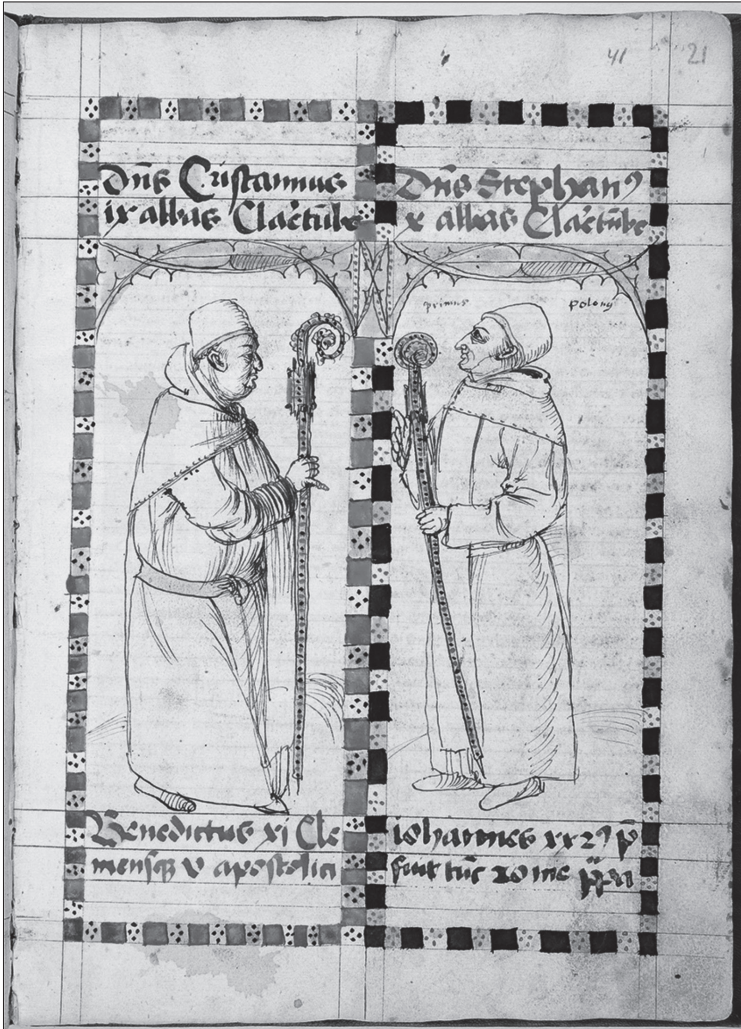 41 21
Dn̄s Cristannus
ix abbas Clar̄tūbe
Dn̄s Stephanꝰ
x abbas Clar̄tūbe
primus polonꝰ
Benedictus xi Cle
mensqꝫ v apostolici
iohannes xx2ꝰ p̄
fuit tūc rome p̄pa